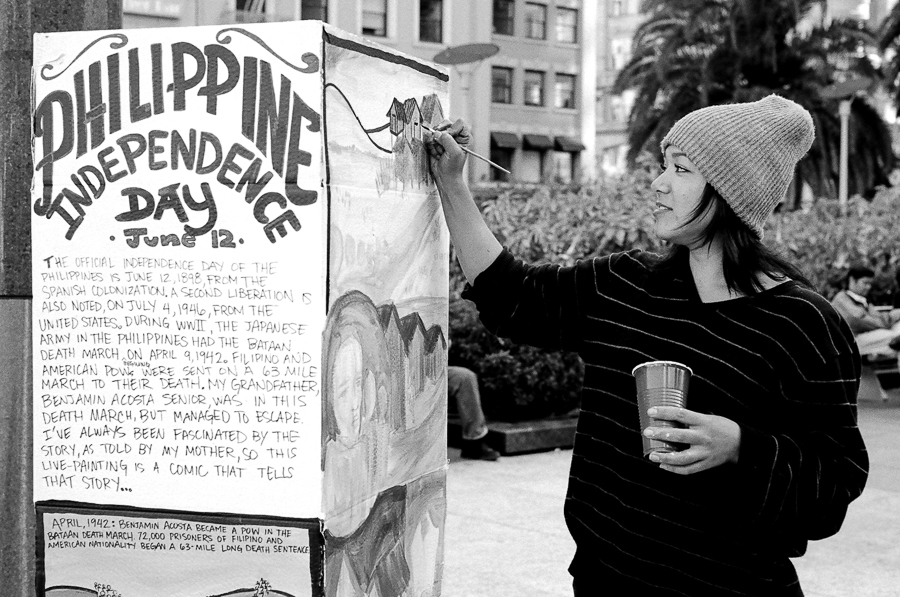 PHILIPPINE
INDEPENDENCE
DAY
· June 12 ·
THE OFFICIAL INDEPENDENCE DAY OF THE
PHILIPPINES IS JUNE 12, 1898, FROM THE
SPANISH COLONIZATION. A SECOND LIBERATION IS
ALSO NOTED, ON JULY 4, 1946, FROM THE
UNITED STATES. DURING WWII, THE JAPANESE
ARMY IN THE PHILIPPINES HAD THE BATAAN
DEATH MARCH, ON APRIL 9, 1942. FILIPINO AND
AMERICAN POWs WERE SENT ON A 63 MILE
MARCH TO THEIR DEATH. MY GRANDFATHER,
BENJAMIN ACOSTA SENIOR, WAS IN THIS
DEATH MARCH, BUT MANAGED TO ESCAPE.
I'VE ALWAYS BEEN FASCINATED BY THE
STORY, AS TOLD BY MY MOTHER, SO THIS
LIVE-PAINTING IS A COMIC THAT TELLS
THAT STORY...
APRIL, 1942: BENJAMIN ACOSTA BECAME A POW IN THE
BATAAN DEATH MARCH. 72,000 PRISONERS OF FILIPINO AND
AMERICAN NATIONALITY BEGAN A 63-MILE LONG DEATH SENTENCE